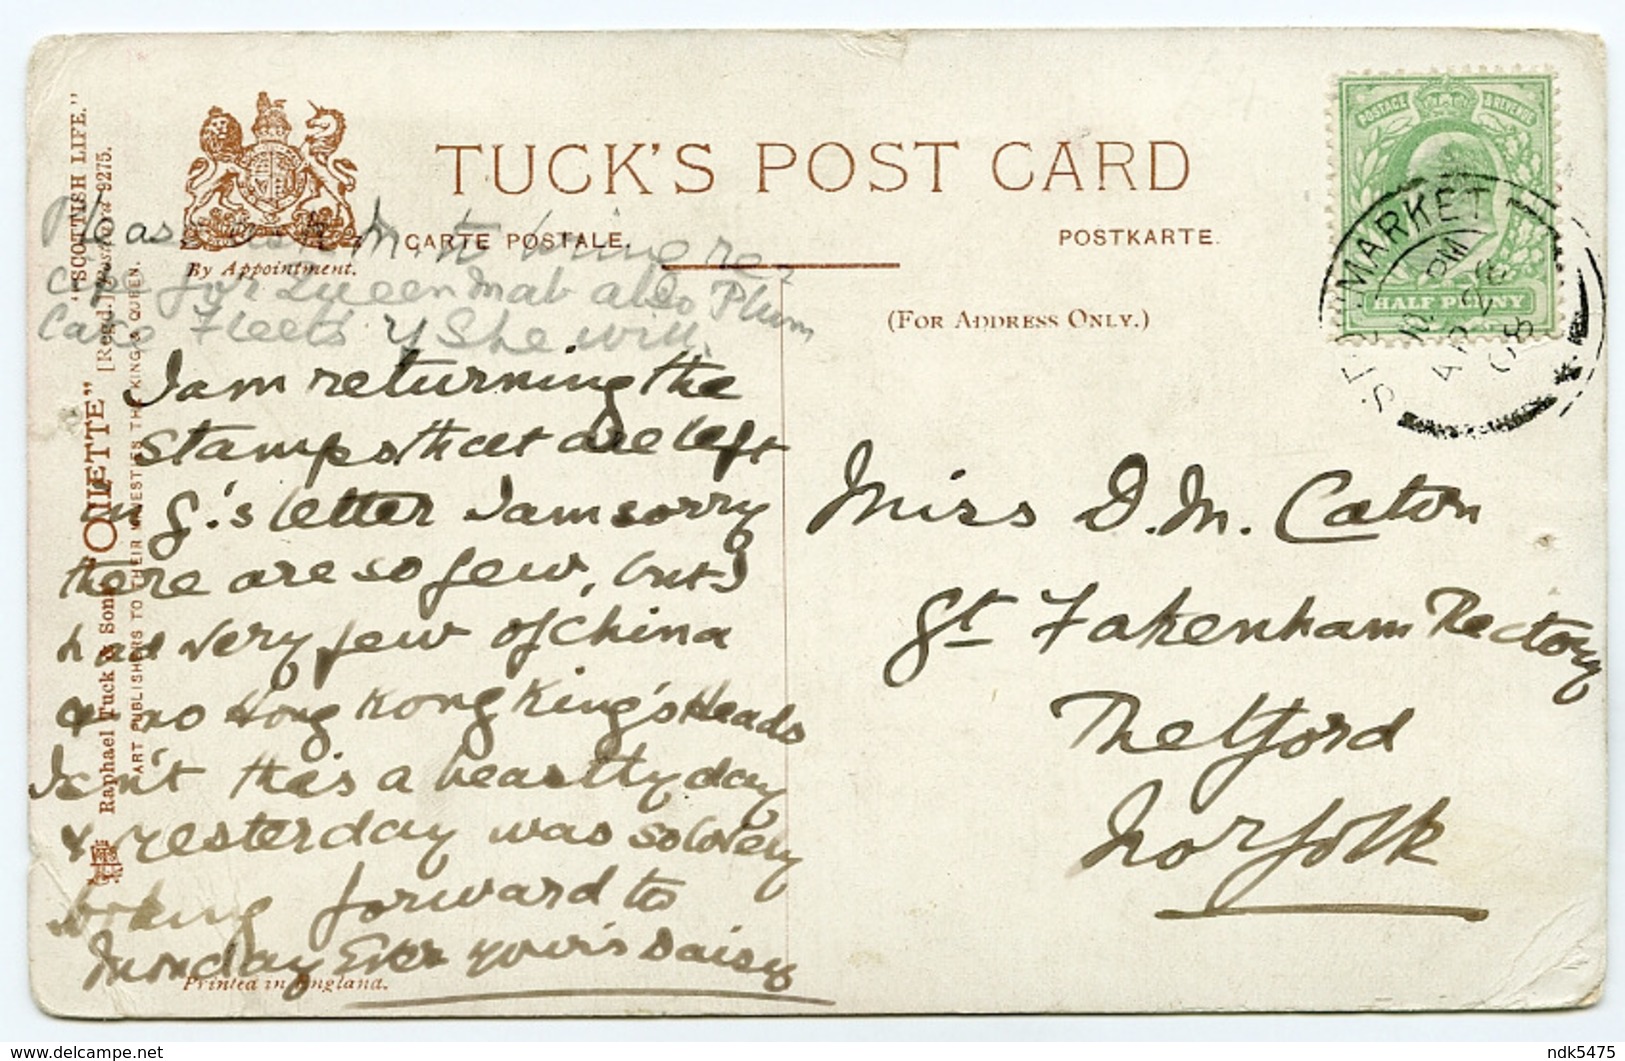 TUCK'S POST CARD
CARTE POSTALE.
POSTKARTE.
By Appointment.
(FOR ADDRESS ONLY.)
"SCOTTISH LIFE."
Raphael Tuck & Sons' "OILETTE" [Regd.] Postcard 9275.
ART PUBLISHERS TO THEIR MAJESTIES THE KING & QUEEN.
Please ask M. to bring re-
cipe for Queen Mab also Plum
Cake Fleets if She will.
I am returning the
stamps that are left
in G.'s letter I am sorry
there are so few, but I
had very few of China
& no Hong Kong King's Heads
Isn't this a beastly day
& yesterday was so lovely
looking forward to
Monday Ever yours Daisy
Printed in England.
POSTAGE & REVENUE
HALF PENNY
MARKET
PM
AP 26
08
Miss D. M. Caton
Gt Fakenham Rectory
Thetford
Norfolk
ndk5475
www.delcampe.net